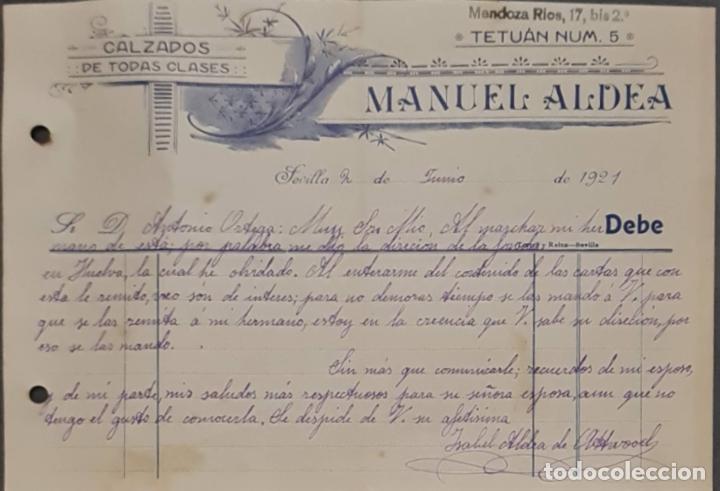 Mendoza Rios, 17, bis 2.º
TETUÁN NUM. 5
CALZADOS
DE TODAS CLASES
MANUEL ALDEA
Sevilla 2 de Junio de 1921
Sr D. Antonio Ortega: Muy Sr. Mio, Al marchar mi her
Debe
mano de esta; por palabra me dijo la direcion de la
Reina—Sevilla
en Huelva, la cual he olvidado. Al enterarme del contenido de las cartas que con
esta le remito, veo són de interes; para no demorar tiempo se las mando á V. para
que se las remita á mi hermano, estoy en la creencia que V. sabe su direcion, por
eso se las mando.
Sin más que comunicarle; recuerdos de mi esposo,
y de mi parte, mis saludos más respectuosos para su señora esposa, aun que no
tengo el gusto de conocerla. Se despide de V. su afetisima
Isabel Aldea de Attwood
todocoleccion
todocoleccion.net